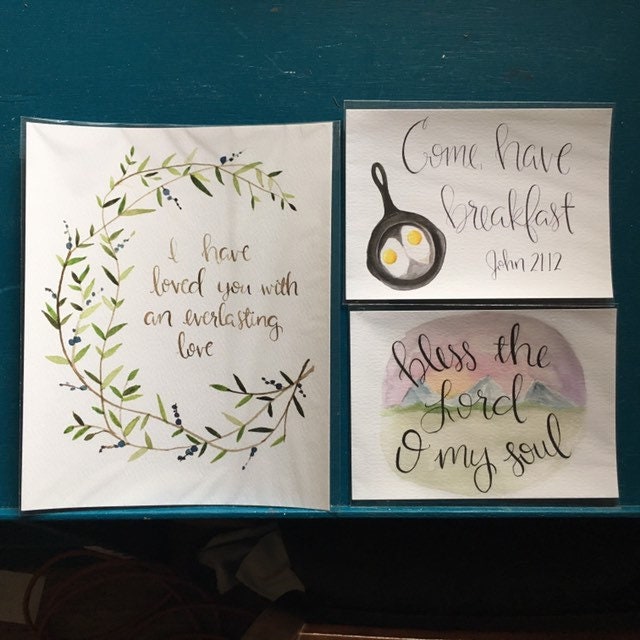 I have
loved you with
an everlasting
love
Come, have
breakfast
John 21:12
bless the
Lord
O my soul